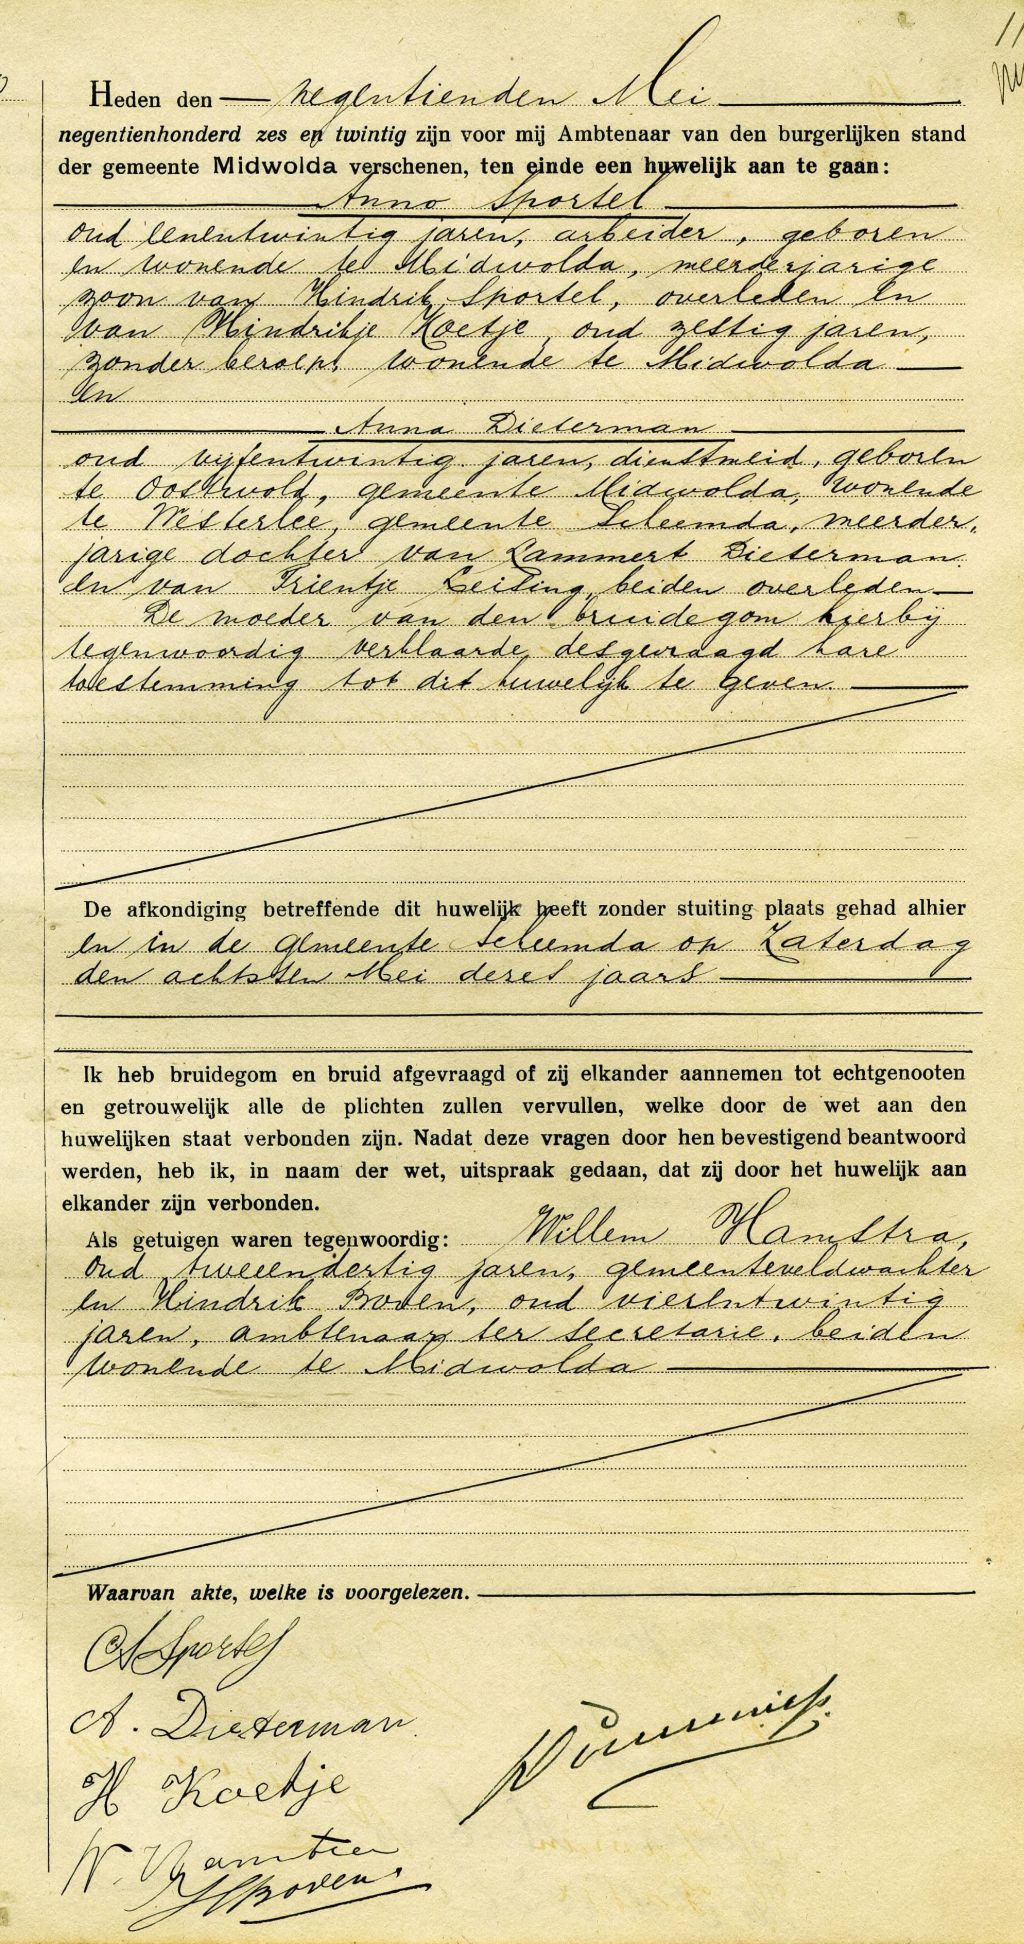 11
Heden den negentienden Mei
negentienhonderd zes en twintig zijn voor mij Ambtenaar van den burgerlijken stand
der gemeente Midwolda verschenen, ten einde een huwelijk aan te gaan:
Anno Sportel
oud eenentwintig jaren, arbeider, geboren
en wonende te Midwolda, meerderjarige
zoon van Hindrik Sportel, overleden en
van Hindriktje Koetje oud zestig jaren,
zonder beroep, wonende te Midwolda
en
Anna Dieterman
oud vijfentwintig jaren, dienstmeid, geboren
te Oostwold, gemeente Midwolda, wonende
te Westerlee, gemeente Scheemda, meerder-
jarige dochter van Lammert Dieterman
en van Trientje Leising, beiden overleden
De moeder van den bruidegom hierbij
tegenwoordig verklaarde desgevraagd hare
toestemming tot dit huwelijk te geven.
De afkondiging betreffende dit huwelijk heeft zonder stuiting plaats gehad alhier
en in de gemeente Scheemda op Zaterdag
den achtsten Mei dezes jaars
Ik heb bruidegom en bruid afgevraagd of zij elkander aannemen tot echtgenooten
en getrouwelijk alle de plichten zullen vervullen, welke door de wet aan den
huwelijken staat verbonden zijn. Nadat deze vragen door hen bevestigend beantwoord
werden, heb ik, in naam der wet, uitspraak gedaan, dat zij door het huwelijk aan
elkander zijn verbonden.
Als getuigen waren tegenwoordig: Willem Hamstra,
oud tweeendertig jaren, gemeenteveldwachter
en Hindrik Boven, oud vierentwintig
jaren, ambtenaar ter secretarie, beiden
wonende te Midwolda
Waarvan akte, welke is voorgelezen.
A Sportel
A. Dieterman
H Koetje
W. Hamstra
H Boven